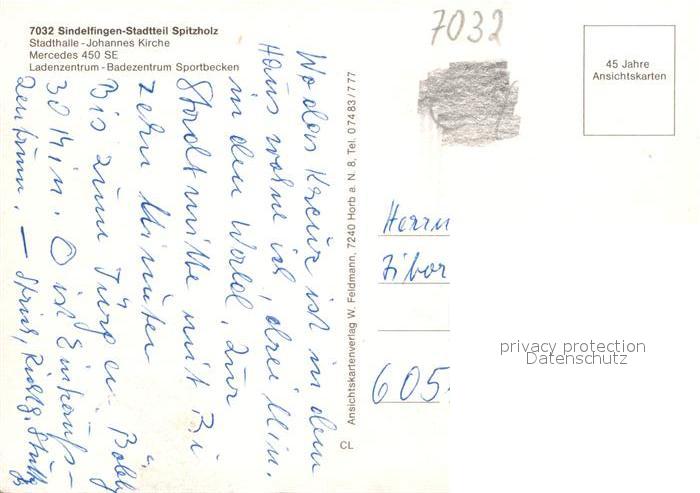 7032 Sindelfingen-Stadtteil Spitzholz
Stadthalle - Johannes Kirche
Mercedes 450 SE
Ladenzentrum - Badezentrum Sportbecken
7032
45 Jahre
Ansichtskarten
Wo das Kreuz ist in dem
Haus wohne ich, drei Min.
in den Wald, zur
Stadtmitte mit
zehn Minuten
Bis zum
30 Min. O ist Einkaufs-
zentrum. —
Ansichtskartenverlag W. Feldmann, 7240 Horb a. N. 8, Tel. 0 74 83 / 7 77
CL
Herrn
Tibor
605
privacy protection
Datenschutz